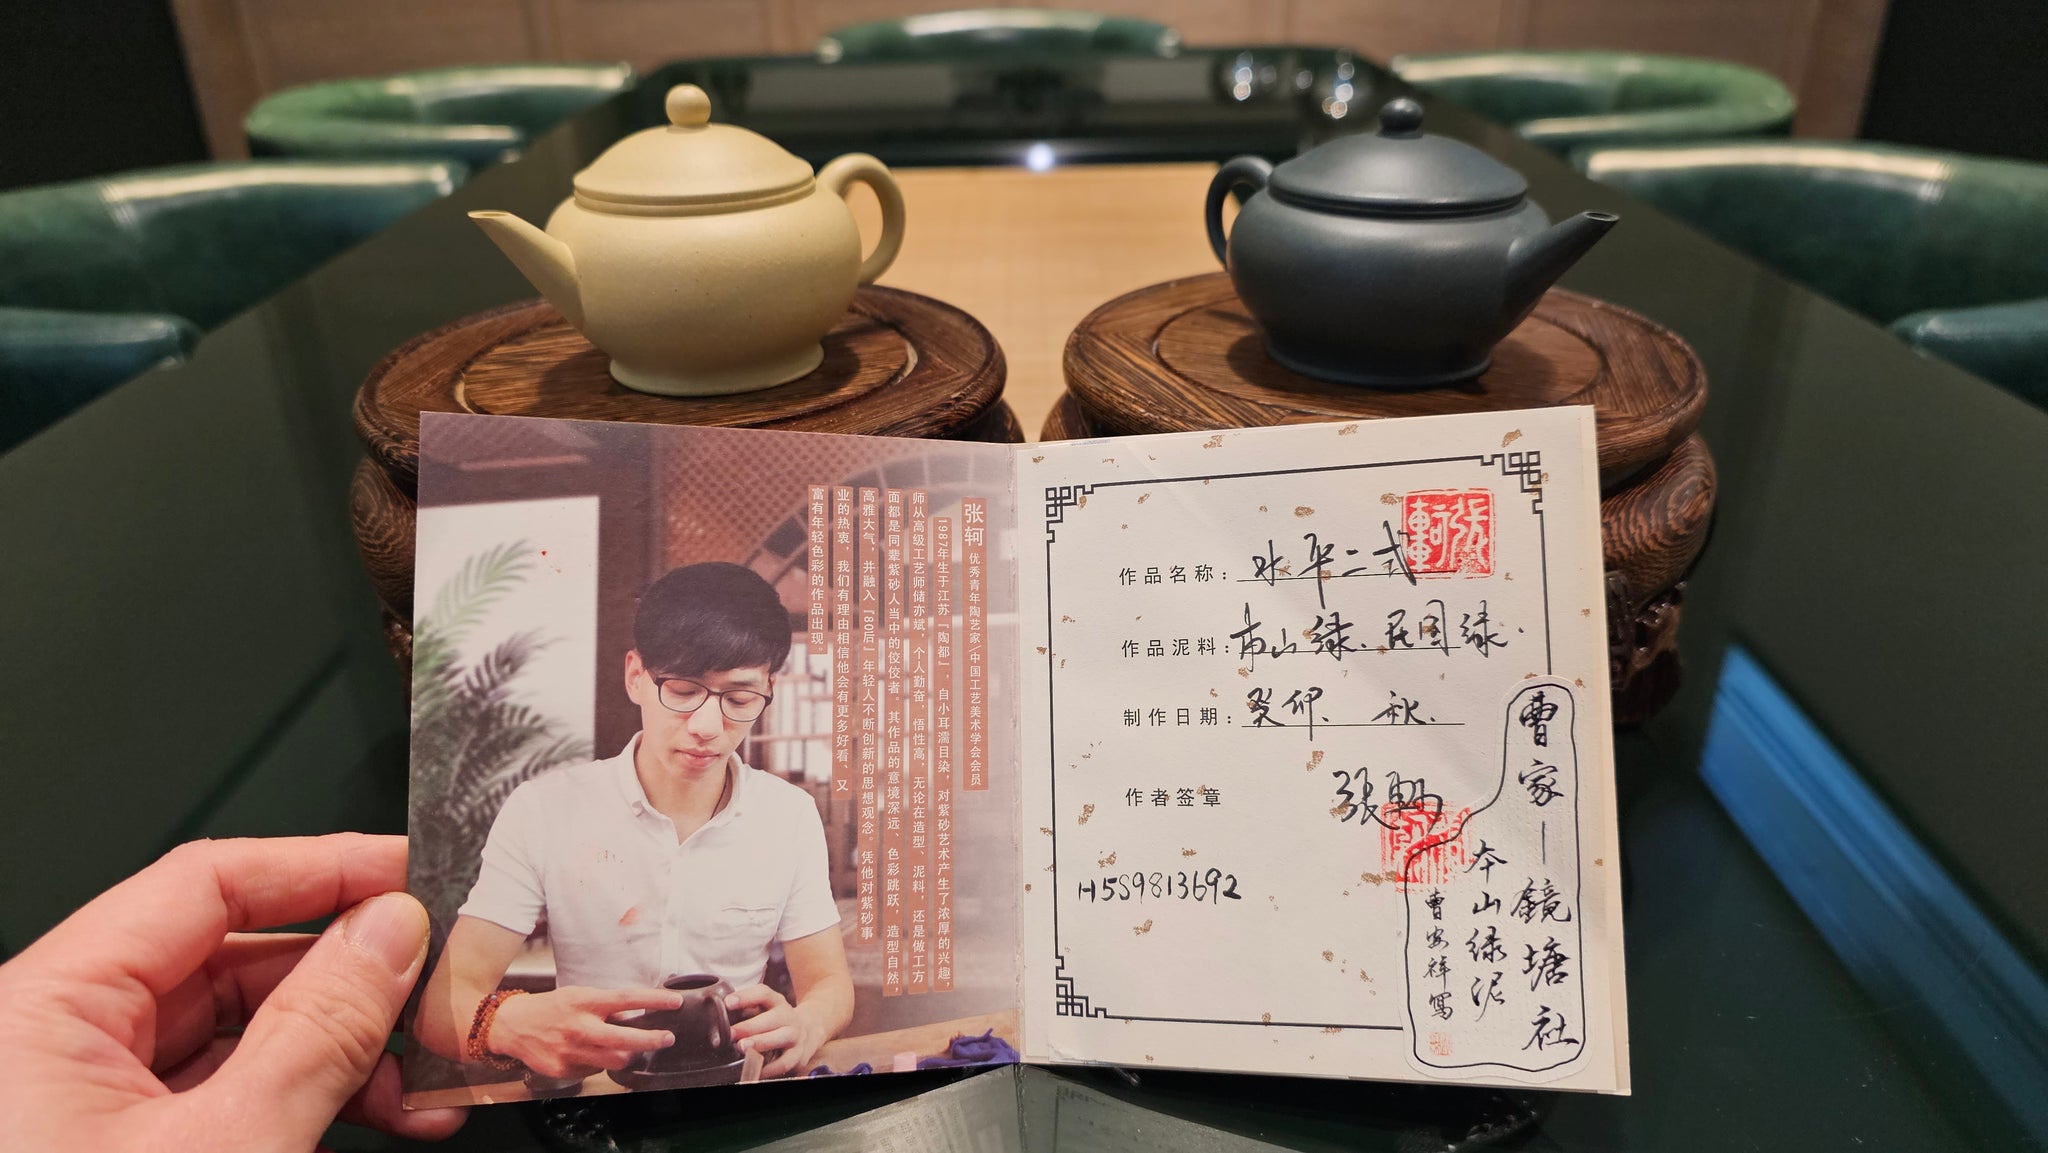 张轲 优秀青年陶艺家\中国工艺美术学会会员
1987年生于江苏『陶都』，自小耳濡目染，对紫砂艺术产生了浓厚的兴趣，
师从高级工艺师储亦斌，个人勤奋，悟性高，无论在造型、泥料，还是做工方
面都是同辈紫砂人当中的佼佼者。其作品的意境深远、色彩跳跃，造型自然，
高雅大气，并融入『80后』年轻人不断创新的思想观念。凭他对紫砂事
业的热衷，我们有理由相信他会有更多好看、又
富有年轻色彩的作品出现。
张轲
作品名称：水平二式
作品泥料：本山绿、民国绿
制作日期：癸卯、秋
作者签章 张轲
H5S9813692
曹家—鏡塘社
本山绿泥
曹安祥寫